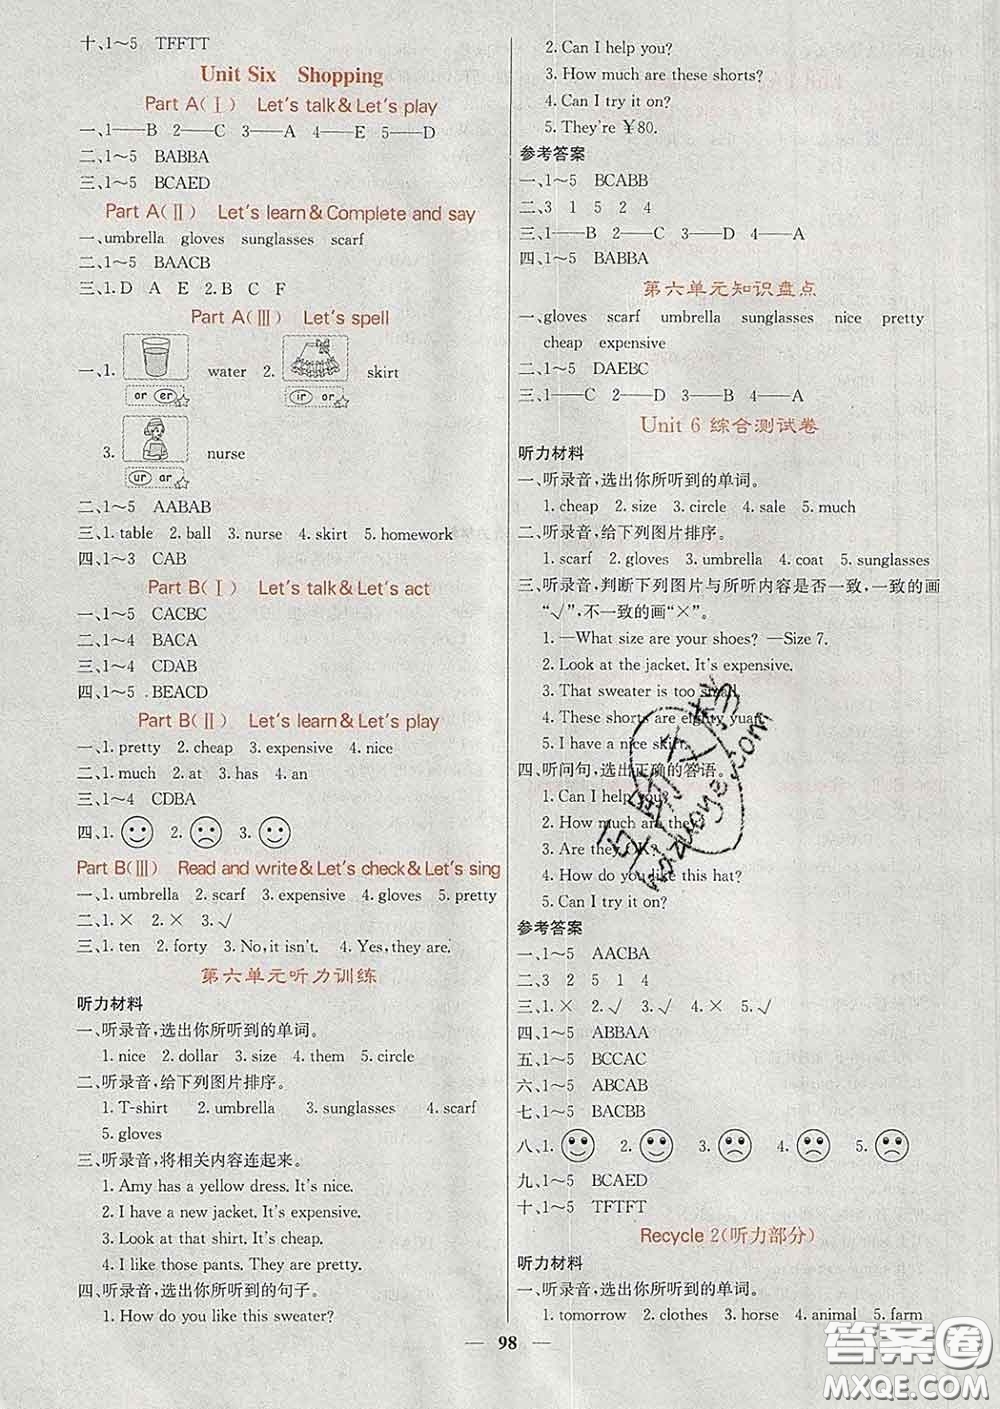 十、1～5 TFFTT
Unit Six Shopping
Part A(Ⅰ) Let's talk & Let's play
一、1——B 2——C 3——A 4——E 5——D
二、1～5 BABBA
三、1～5 BCAED
Part A(Ⅱ) Let's learn & Complete and say
一、umbrella gloves sunglasses scarf
二、1～5 BAACB
三、1. D A E 2. B C F
Part A(Ⅲ) Let's spell
一、1. water 2. skirt
or er ir or
3. nurse
ur ar
二、1～5 AABAB
三、1. table 2. ball 3. nurse 4. skirt 5. homework
四、1～3 CAB
Part B(Ⅰ) Let's talk & Let's act
一、1～5 CACBC
二、1～4 BACA
三、1～4 CDAB
四、1～5 BEACD
Part B(Ⅱ) Let's learn & Let's play
一、1. pretty 2. cheap 3. expensive 4. nice
二、1. much 2. at 3. has 4. an
三、1～4 CDBA
四、1. 2. 3.
Part B(Ⅲ) Read and write & Let's check & Let's sing
一、1. umbrella 2. scarf 3. expensive 4. gloves 5. pretty
二、1. × 2. × 3. √
三、1. ten 2. forty 3. No, it isn't. 4. Yes, they are.
第六单元听力训练
听力材料
一、听录音,选出你所听到的单词。
1. nice 2. dollar 3. size 4. them 5. circle
二、听录音,给下列图片排序。
1. T-shirt 2. umbrella 3. sunglasses 4. scarf
5. gloves
三、听录音,将相关内容连起来。
1. Amy has a yellow dress. It's nice.
2. I have a new jacket. It's expensive.
3. Look at that shirt. It's cheap.
4. I like those pants. They are pretty.
四、听录音,选出你所听到的句子。
1. How do you like this sweater?
2. Can I help you?
3. How much are these shorts?
4. Can I try it on?
5. They're ￥80.
参考答案
一、1～5 BCABB
二、3 1 5 2 4
三、1——B 2——C 3——D 4——A
四、1～5 BABBA
第六单元知识盘点
一、gloves scarf umbrella sunglasses nice pretty
cheap expensive
二、1～5 DAEBC
三、1——C 2——D 3——B 4——A
Unit 6 综合测试卷
听力材料
一、听录音,选出你所听到的单词。
1. cheap 2. size 3. circle 4. sale 5. much
二、听录音,给下列图片排序。
1. scarf 2. gloves 3. umbrella 4. coat 5. sunglasses
三、听录音,判断下列图片与所听内容是否一致,一致的画
“√”,不一致的画“×”。
1. —What size are your shoes? —Size 7.
2. Look at the jacket. It's expensive.
3. That sweater is too small.
4. These shorts are eighty yuan.
5. I have a nice skirt.
四、听问句,选出正确的答语。
1. Can I help you?
2. How much are they?
3. Are they OK?
4. How do you like this hat?
5. Can I try it on?
参考答案
一、1～5 AACBA
二、3 2 5 1 4
三、1. × 2. √ 3. √ 4. × 5. √
四、1～5 ABBAA
五、1～5 BCCAC
六、1～5 ABCAB
七、1～5 BACBB
八、1. 2. 3. 4. 5.
九、1～5 BCAED
十、1～5 TFTFT
Recycle 2(听力部分)
听力材料
一、听录音,选出你所听到的单词。
1. tomorrow 2. clothes 3. horse 4. animal 5. farm
— 98 —
答案圈
MXQE.COM